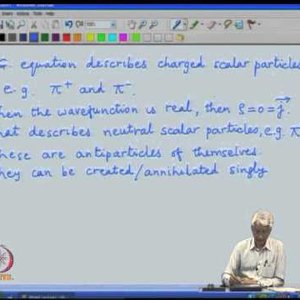 equation describes charged scalar particles
e.g. π⁺ and π⁻.
hen the wavefunction is real, then ρ=0=j⃗.
hat describes neutral scalar particles, e.g. π
hese are antiparticles of themselves.
hey can be created/annihilated singly